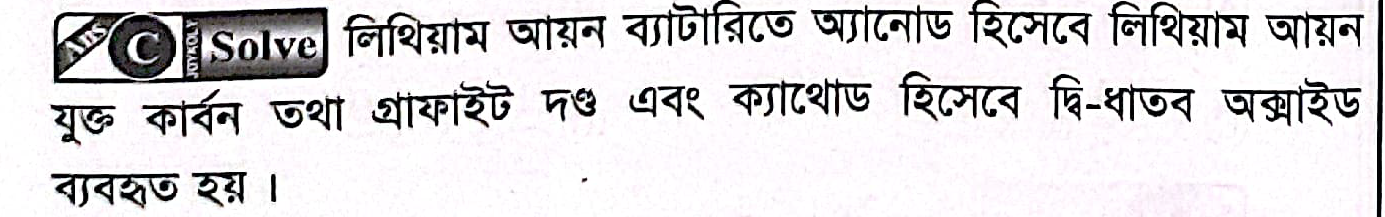 Ans C JOYKOLY Solve লিথিয়াম আয়ন ব্যাটারিতে অ্যানোড হিসেবে লিথিয়াম আয়ন
যুক্ত কার্বন তথা গ্রাফাইট দণ্ড এবং ক্যাথোড হিসেবে দ্বি-ধাতব অক্সাইড
ব্যবহৃত হয় ।